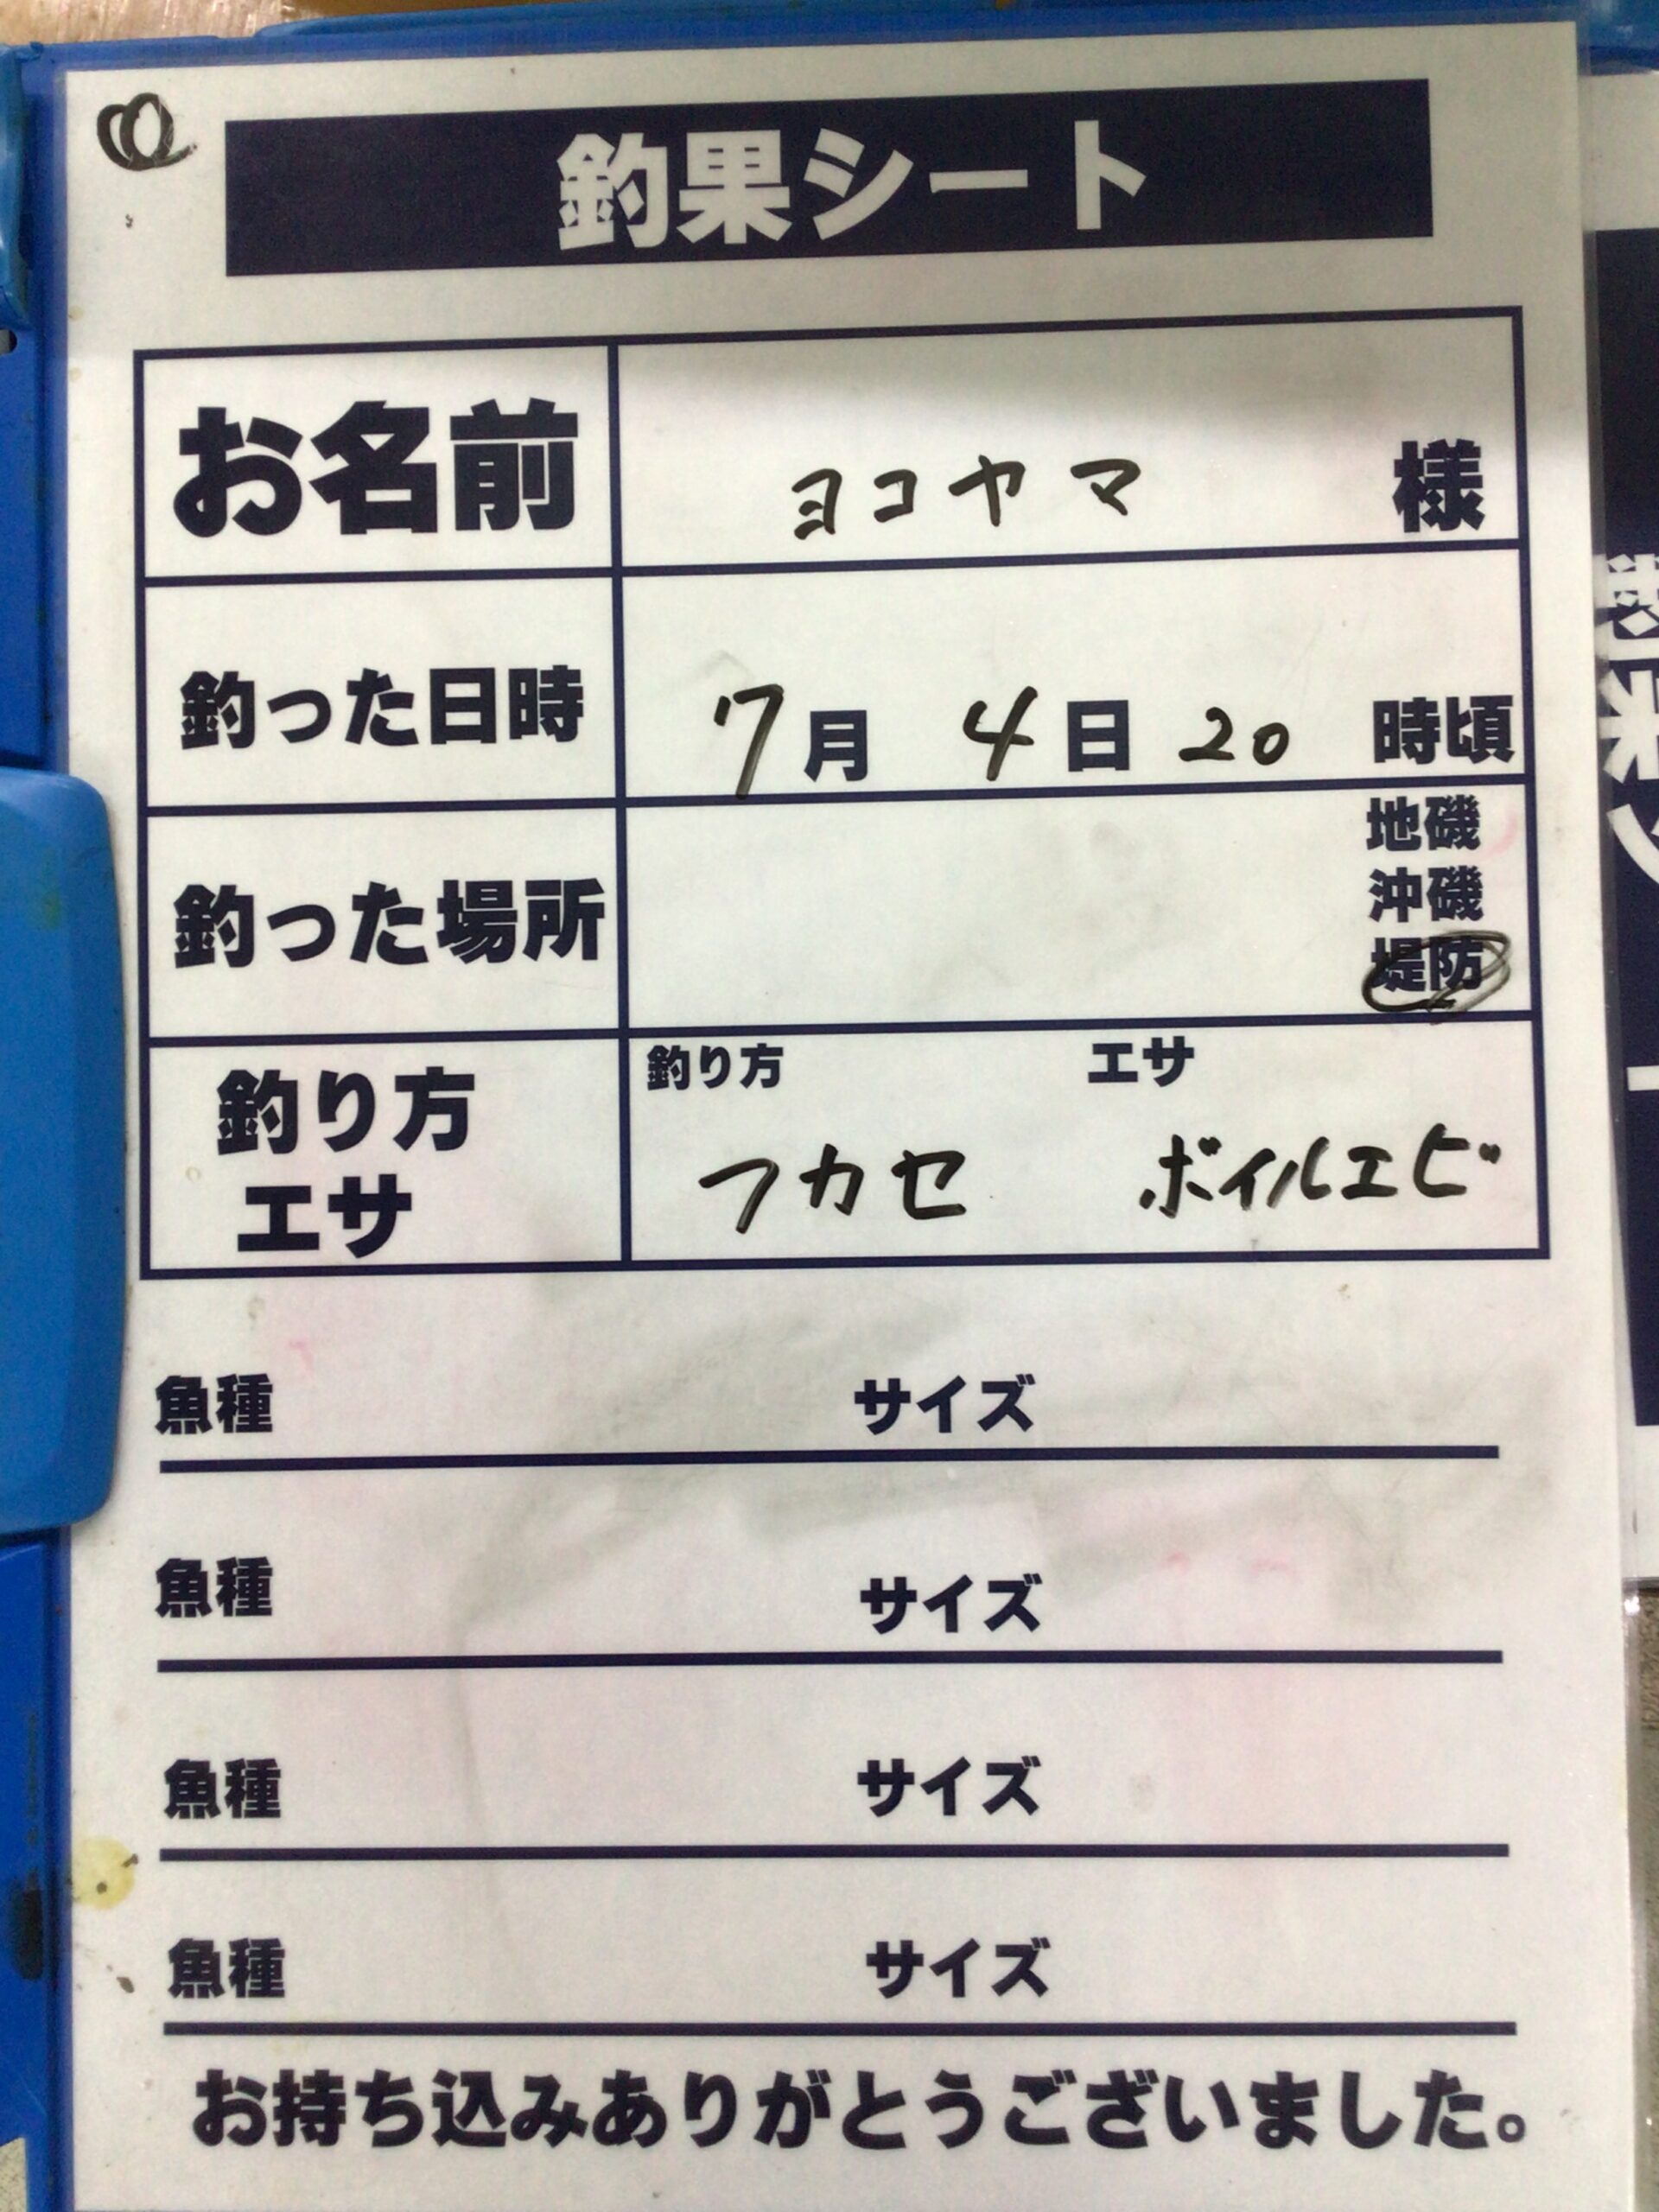 釣果シート
お名前 ヨコヤマ 様
釣った日時 7月 4日 20 時頃
釣った場所
地磯
沖磯
堤防
釣り方 エサ
釣り方
エサ
フカセ ボイルエビ
魚種 サイズ
魚種 サイズ
魚種 サイズ
魚種 サイズ
お持ち込みありがとうございました。